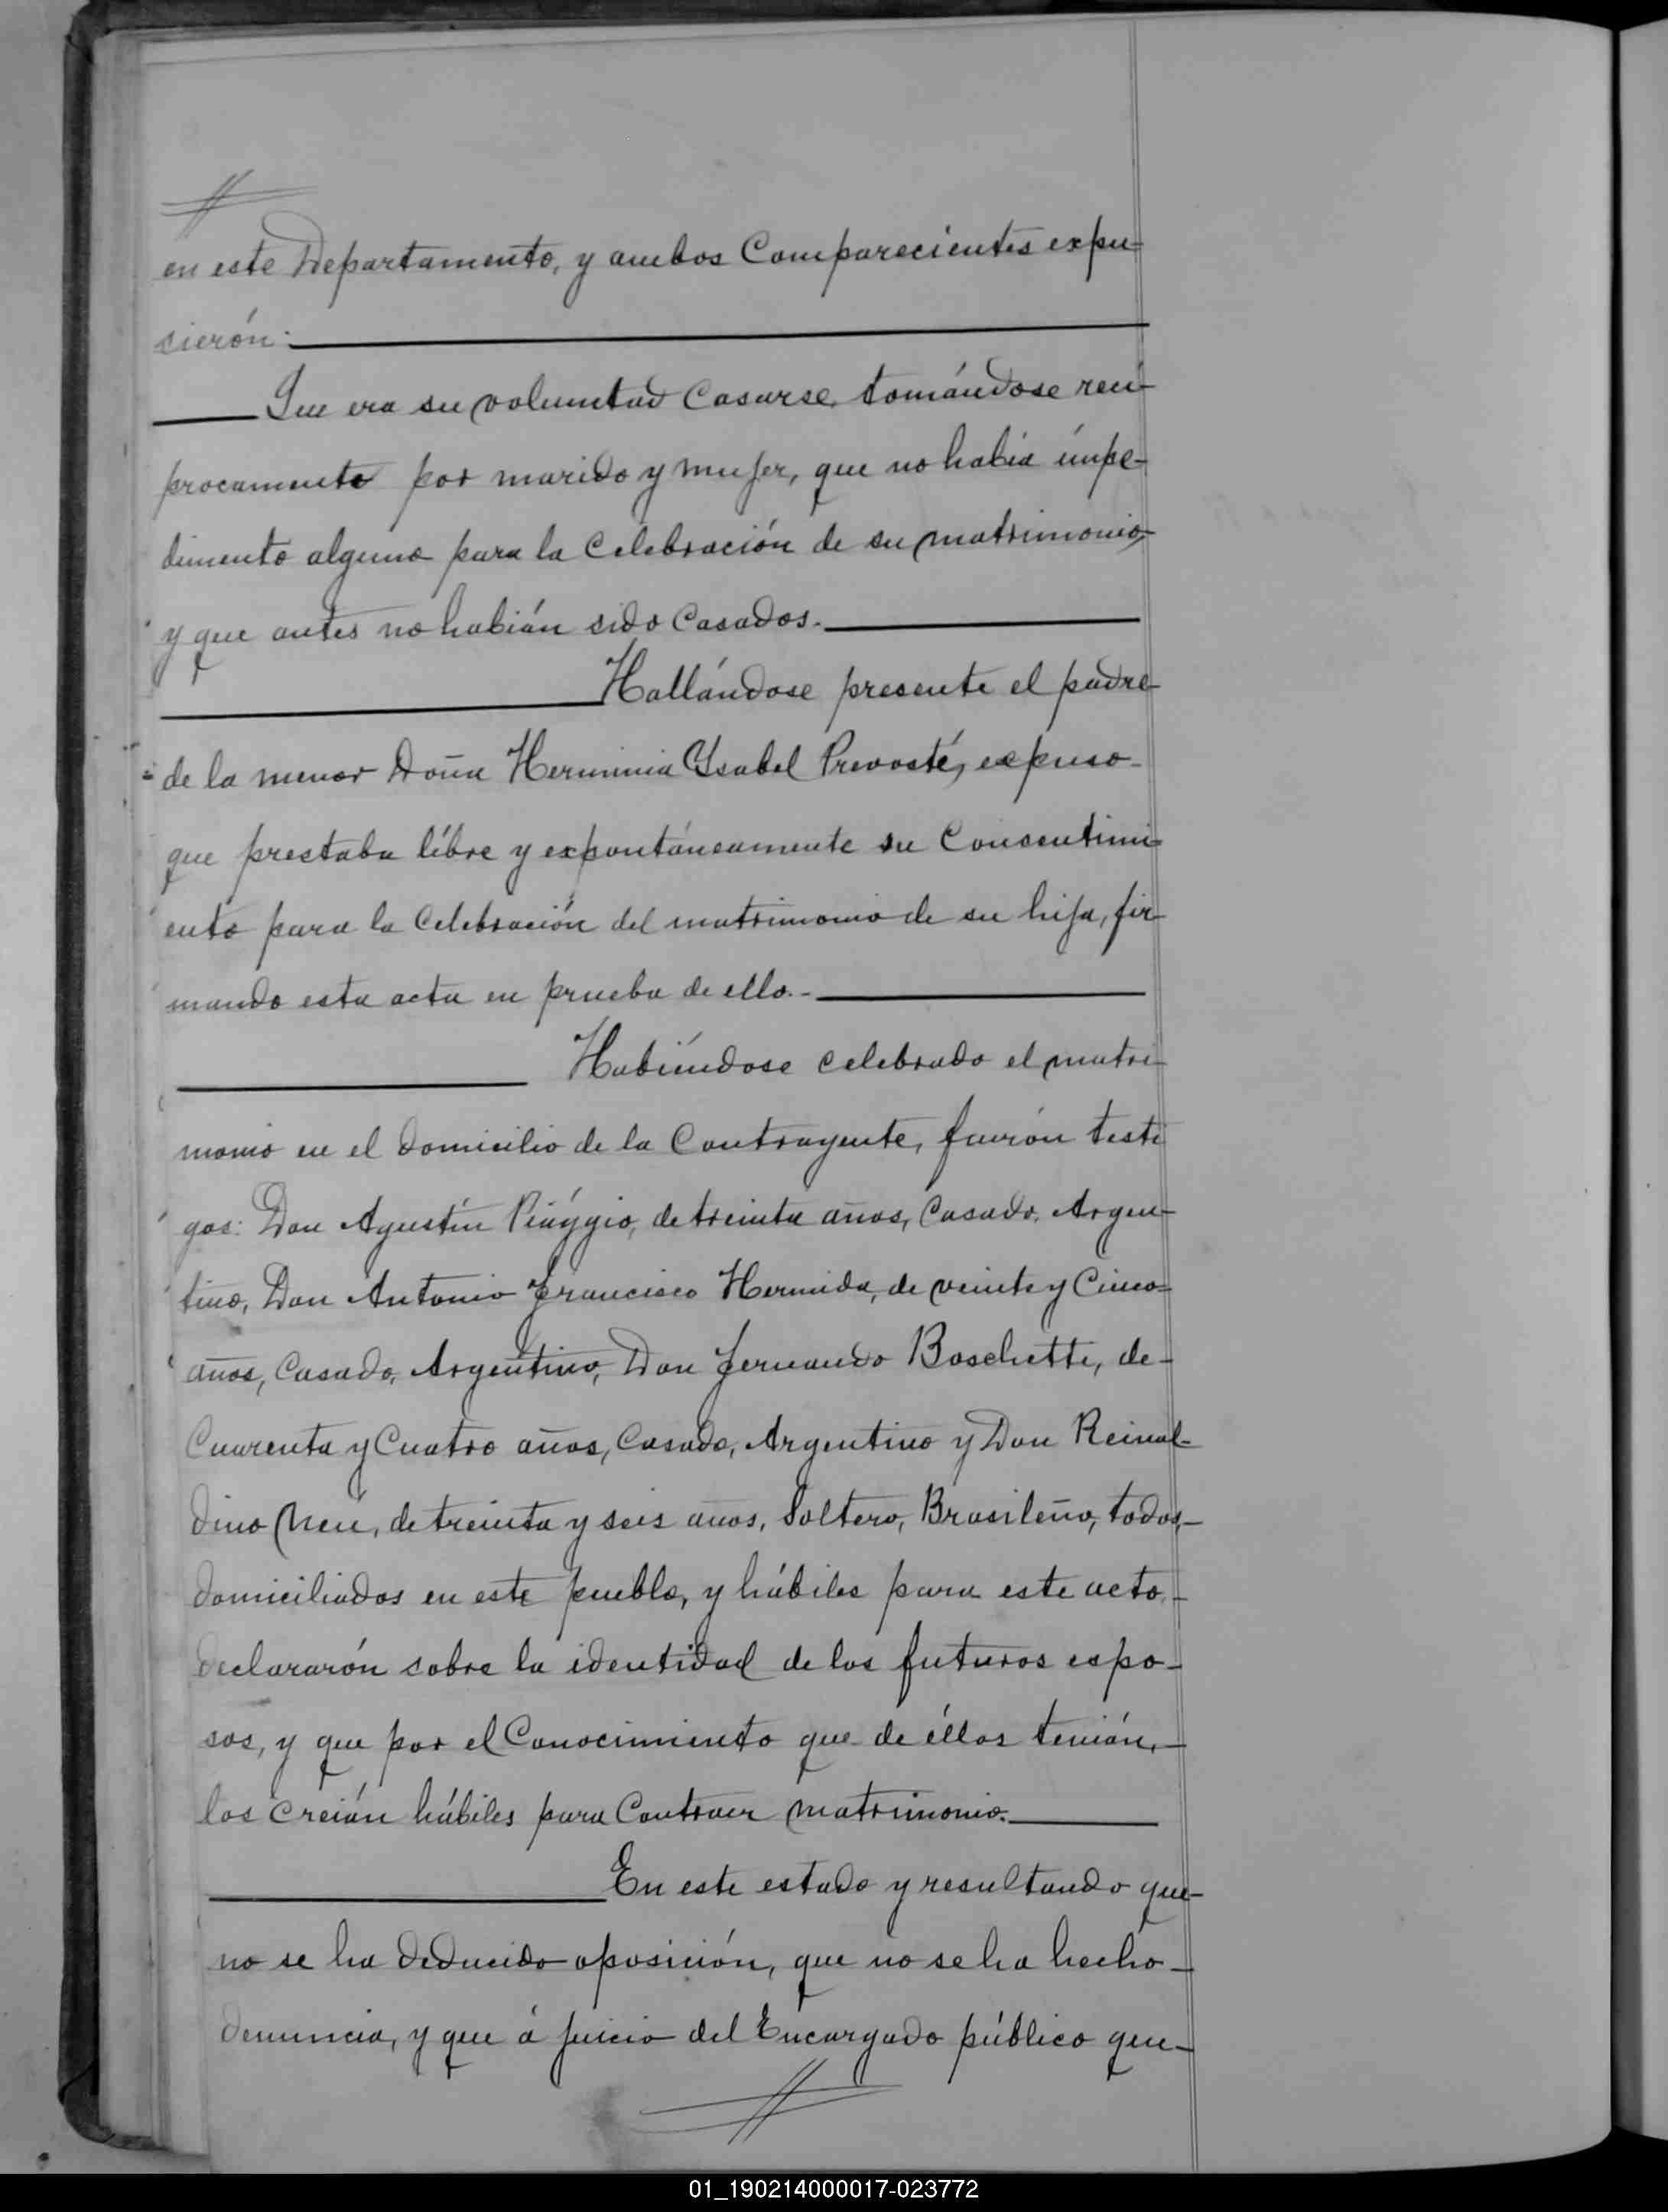 en este Departamento, y ambos Comparecientes expu-
sierón:
Que era su voluntad Casarse, tomándose reci-
procamente por marido y mujer, que no había impe-
dimento alguno para la Celebración de su matrimonio,
y que antes no habián sido Casados.-
Hallándose presente el padre-
de la menor Doña Herminia Ysabel Prevosté, expuso-
que prestaba libre y expontáneamente su Consentimi-
ento para la Celebración del matrimonio de su hija, fir-
mando esta acta en prueba de ello.-
Habiéndose Celebrado el matri-
monio en el domicilio de la Contrayente, fuerón testi
gos: Don Agustín Piággio, de treinta años, Casado, Argen-
tino, Don Antonio Francisco Hermida, de veinte y Cinco-
años, Casado, Argentino, Don Fernando Boschetti, de-
Cuarenta y Cuatro años, Casado, Argentino y Don Reinal-
dino de treinta y seis años, Soltero, Brasileño, todos,-
domiciliados en este pueblo, y hábiles para este acto,-
declararón sobre la identidad de los futuros espo-
sos, y que por el Conocimiento que de éllos tenián,-
los creián hábiles para Contraer matrimonio.
En este estado y resultando que-
no se ha deducido oposición, que no se ha hecho-
denuncia, y que á juicio del Encargado público que-
01_190214000017-023772